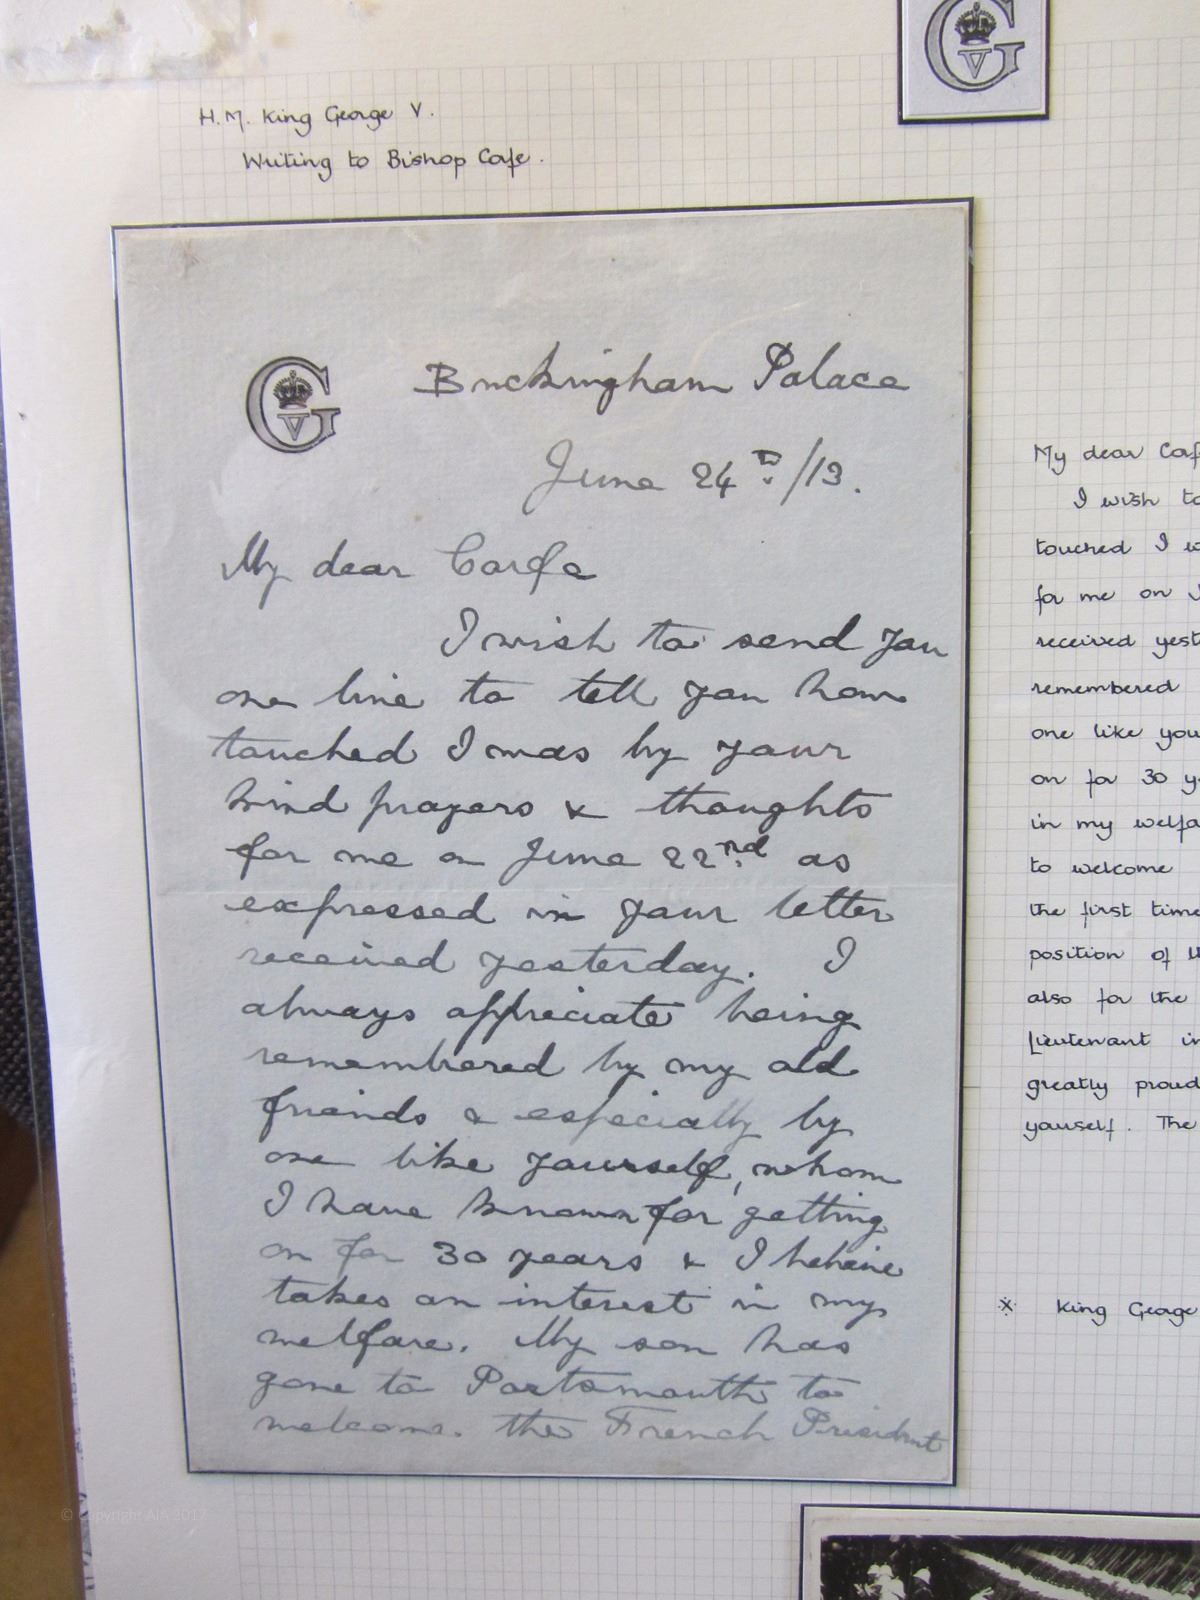 H.M. King George V.
Writing to Bishop Cafe.
G V
G V
Buckingham Palace
June 24th/13.
My dear Carfe
I wish to send you
one line to tell you how
touched I was by your
kind prayers & thoughts
for me on June 22nd as
expressed in your letter
received yesterday. I
always appreciate being
remembered by my old
friends & especially by
one like yourself, whom
I have known for getting
on for 30 years & I believe
takes an interest in my
welfare. My son has
gone to Portsmouth to
welcome. the French President
My dear Caf
I wish to
touched I w
for me on J
received yest
remembered
one like you
on for 30 y
in my welfa
to welcome
the first time
position of th
also for the
Lieutenant in
greatly proud
yourself. The
x King George
© Copyright AIA 2017